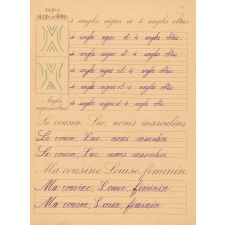 4 angles aigus et 4 angles obtus
4 angles aigus et 4 angles obtus
4 angles aigus et 4 angles
4 angles aigus et 4 angles obtus
4 angles aigus et 4 angles
4 angles aigus et 4 angles obtus
Angles
Le cousin, Luc, noms masculins
Le cousin, Luc, noms masculins
Le cousin, Luc, noms masculins
Ma cousine, Louise, féminin
Ma cousine, Louise, féminin
Ma cousine, Louise, féminin